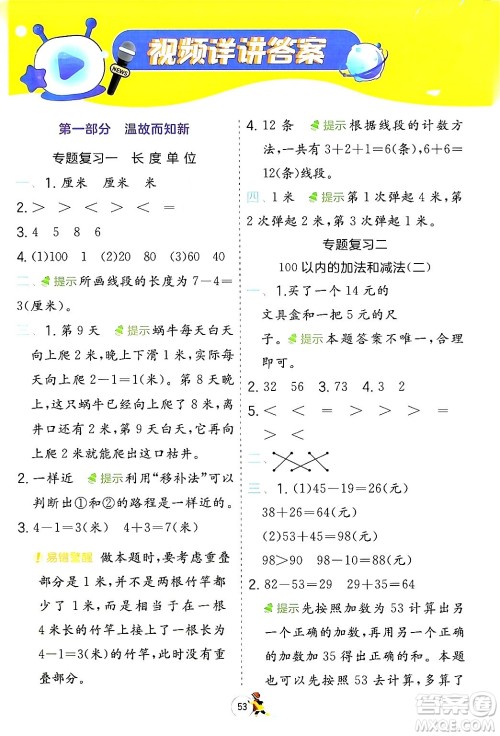 视频详讲答案
NEWS
第一部分 温故而知新
专题复习一 长度单位
一、1. 厘米 厘米 米
2. ＞ ＞ ＜ ＞ ＜ ＞
3. 4 5 8 6
4. (1)100 1 (2)20 80 60
二、提示 所画线段的长度为 7－4＝
3(厘米)。
三、1. 第 9 天 提示 蜗牛每天白天
向上爬 2 米，晚上下滑 1 米，实际每天
向上爬 2－1＝1(米)。第 8 天晚
上，这只蜗牛已经向上爬了 8 米，离
井口还有 2 米，第 9 天白天，向上爬
2 米，正好爬出枯井。
2. 一样近 提示 利用“移补法”可以
判断出①和②的路程是一样近的。
3. 4－1＝3(米) 4＋3＝7(米)
易错警醒 做本题时，要注意重叠
部分是 1 米，并不是两根竹竿都
重叠 1 米，所以可以看作是一根
4 米长的竹竿和一根长
4－1＝3(米)的竹竿连在一起，没
有重叠部分。
4. 12 条 提示 根据线段的计数方
法，一共有 3＋2＋1＝6(条)，6＋6＝
12(条)线段。
四、1 米 提示 第 1 次弹起 4 米，第
2 次弹起 2 米，第 3 次弹起 1 米。
专题复习二
100 以内的加法和减法(二)
一、1. 买了一个 14 元的
文具盒和一把 5 元的尺
子。 提示 本题答案不唯一，合理
即可。
2. 32 56 3. 73 4. 3 2
5. ＜ ＜ ＞ ＝ ＜ ＞
＞ ＜ ＝
二、
三、1. (1)45－19＝26(元)
38＋26＝64(元)
(2)53＋45＝98(元)
98＞90 98－90＝8(元)
2. 82－53＝29 29＋35＝64
提示 先按照加数为 53 计算出另
一个正确的加数，再用另一个正确的
加数加 35 得出正确的和。本题
也可以先按照加数 53，多算了
53